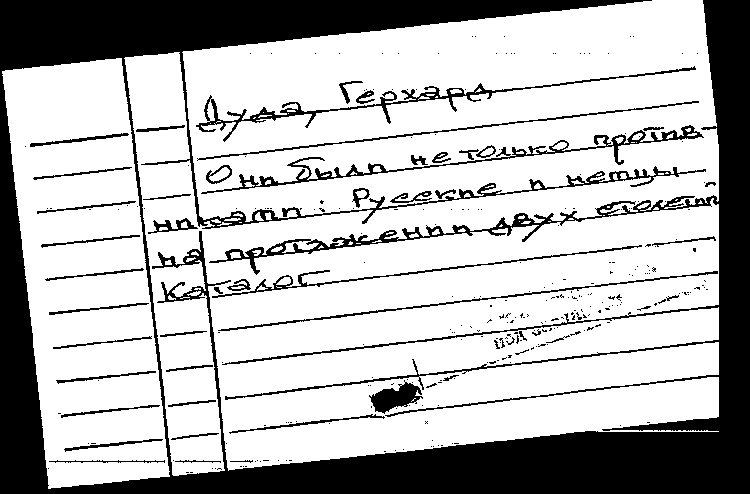 Дуда, Герхард
Они были не только против-
никами: Русские и немцы
на протяжении двух столетий
Каталог.